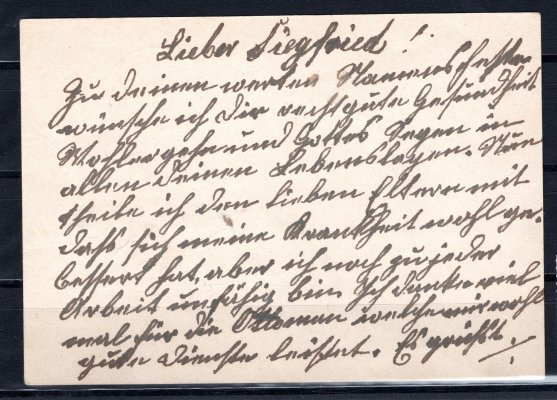 Lieber Siegfried!
Zu deinen werten Namensfeste
wünsche ich dir recht gute Gesundheit
Wohlergehn und Gottes Segen in
allen deinen Lebenslagen. Nun
theile ich den lieben Eltern mit
dahs sich meine Krankheit wohl ge-
bessert hat, aber ich noch zu jeder
Arbeit unfähig bin. Ich danke viel
mal für die Ottoman welche mir wohl
gute Dienste leistet. Es grüßt